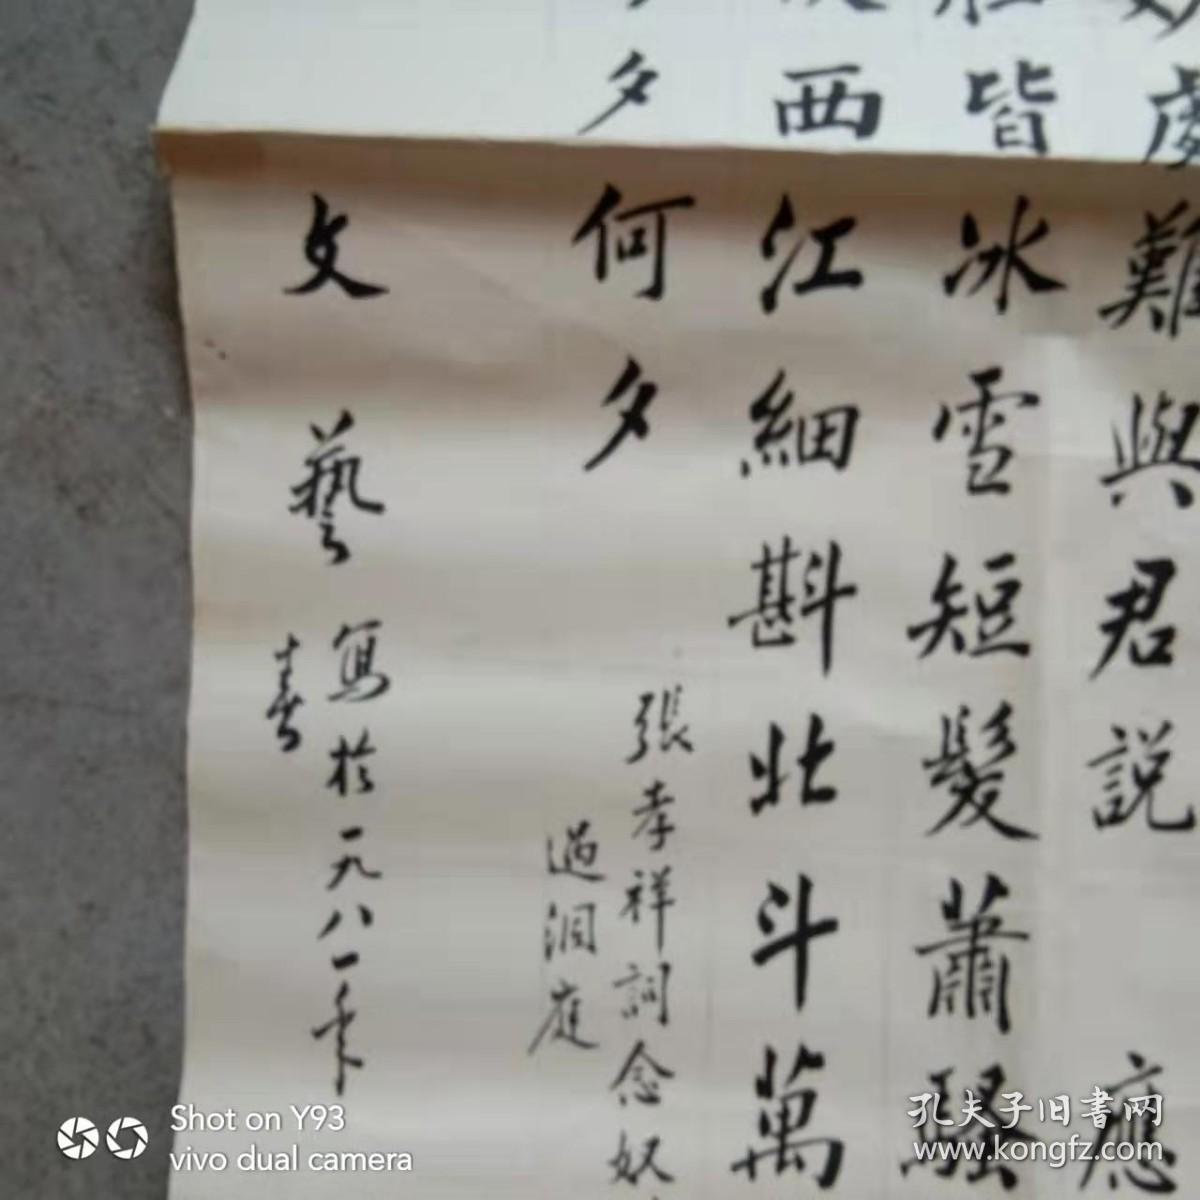 妙處難與君説 應
皆冰雪短髮蕭騷
西江細斟北斗萬
夕何夕
張孝祥詞念奴
過洞庭
文藝 寫於一九八一年
春
Shot on Y93
vivo dual camera
孔夫子旧书网
www.kongfz.com